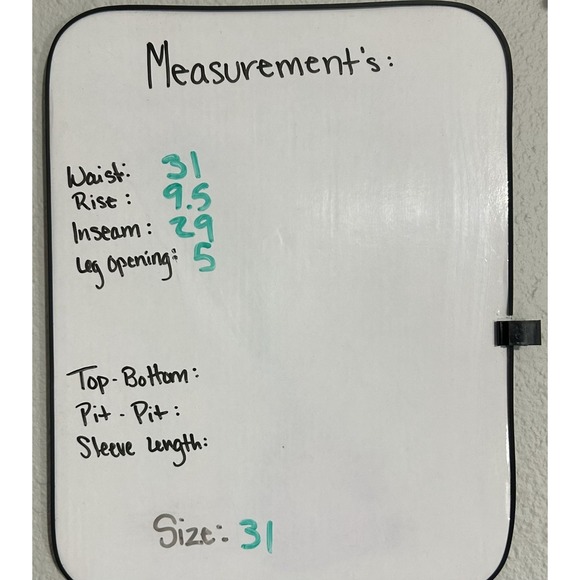 Measurement's:
Waist: 31
Rise: 9.5
Inseam: 29
Leg Opening: 5
Top-Bottom:
Pit-Pit:
Sleeve Length:
Size: 31